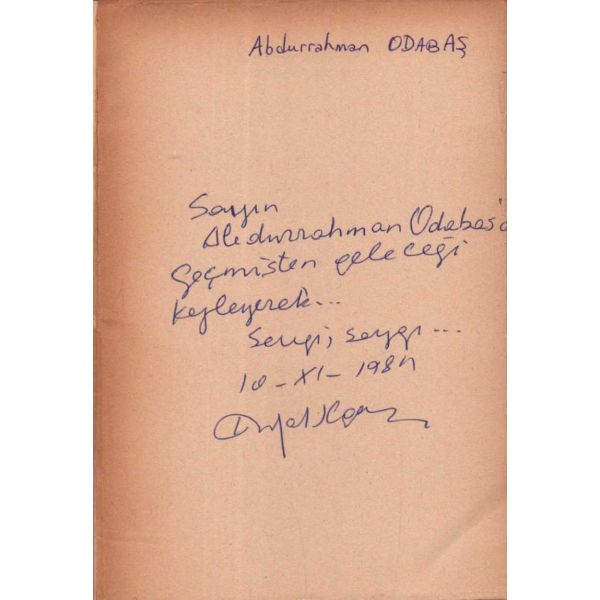 Abdurrahman ODABAŞ
Sayın
Abdurrahman Odabaş'a
Geçmişten geleceği
Sevgi, saygı...
10-XI-198